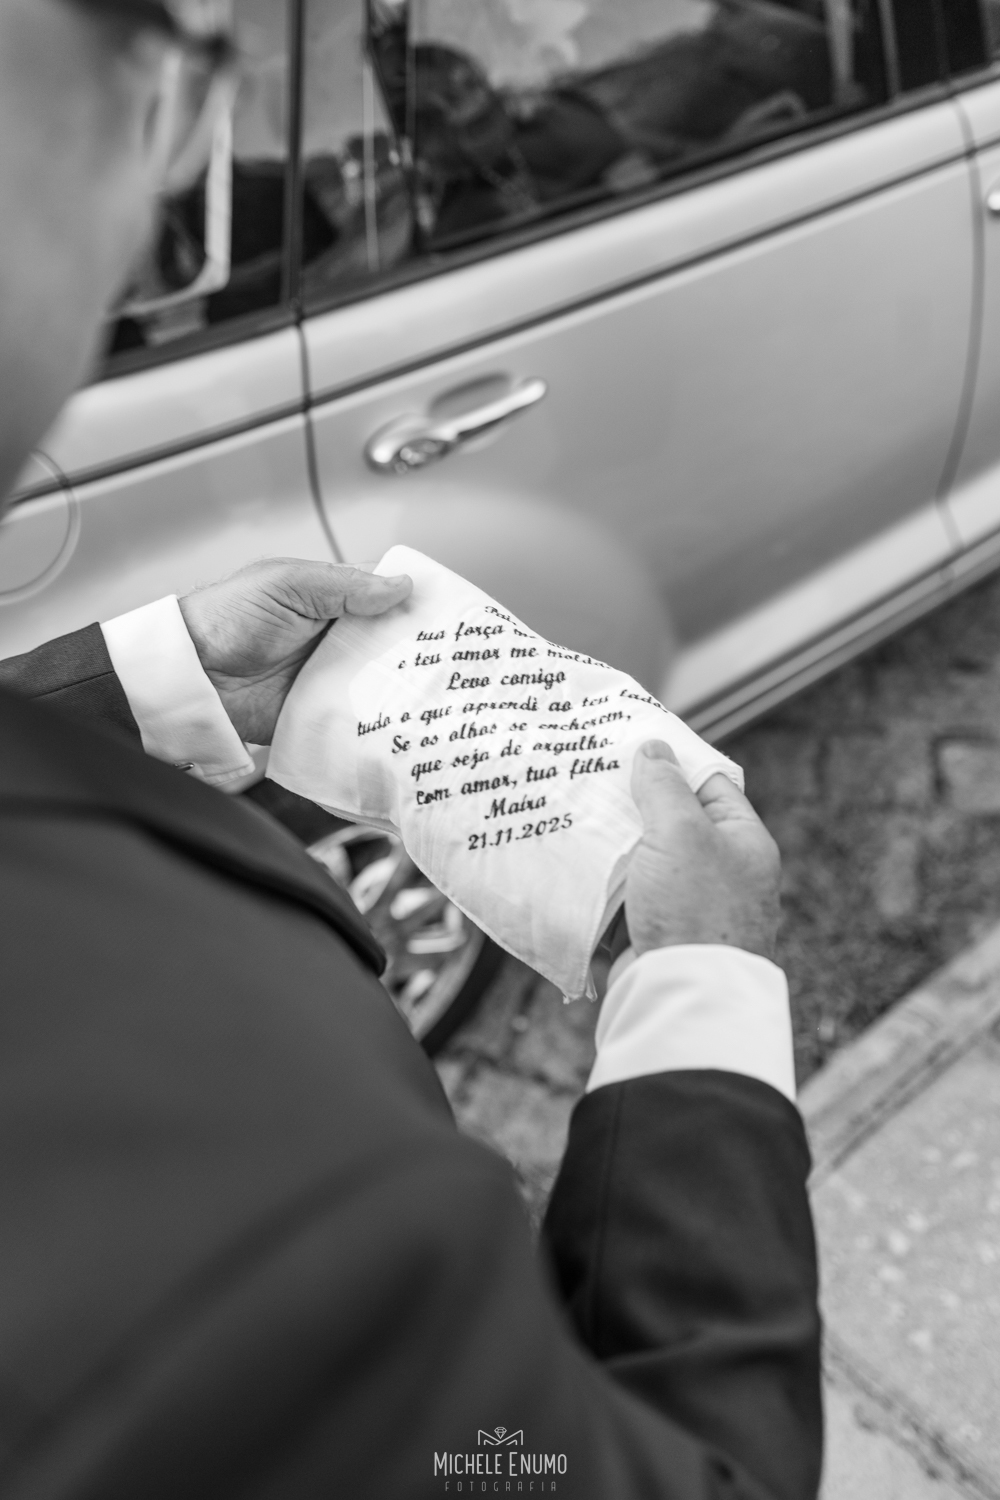 Pai,
tua força me
e teu amor me molda.
Levo comigo
tudo o que aprendi ao teu lado.
Se os olhos se encherem,
que seja de orgulho.
Com amor, tua filha
Maíra
21.11.2025
MICHELE ENUMO
FOTOGRAFIA